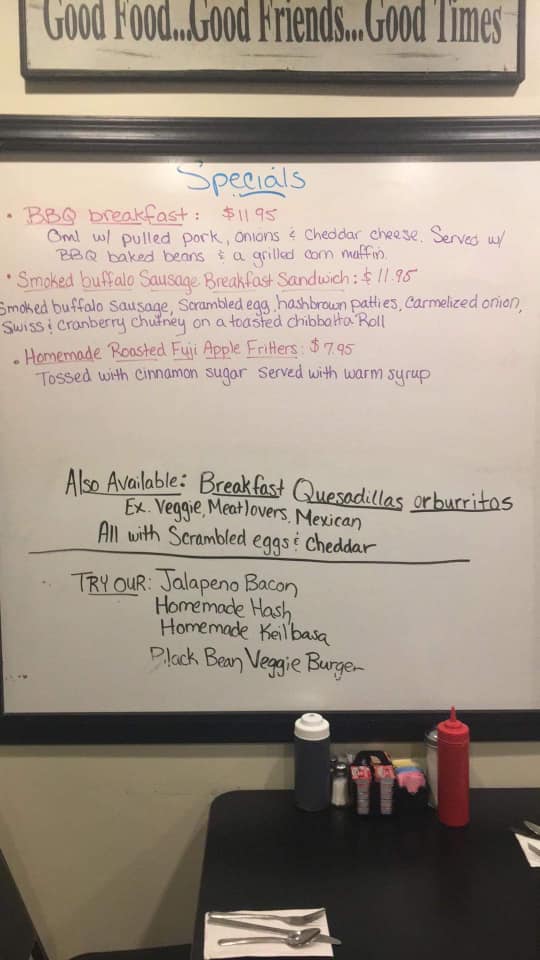 Good Food...Good Friends...Good Times
Specials
• BBQ breakfast: $11.95
Oml w/ pulled pork, onions & cheddar cheese. Served w/
BBQ baked beans & a grilled corn muffin.
• Smoked buffalo Sausage Breakfast Sandwich: $11.95
Smoked buffalo sausage, Scrambled egg, hashbrown patties, carmelized onion,
Swiss & cranberry chutney on a toasted chibbatta Roll
• Homemade Roasted Fuji Apple Fritters: $7.95
Tossed with cinnamon sugar served with warm syrup
Also Available: Breakfast Quesadillas or burritos
Ex. Veggie, Meatlovers, Mexican
All with Scrambled eggs & Cheddar
TRY OUR: Jalapeno Bacon
Homemade Hash
Homemade Keilbasa
Black Bean Veggie Burger